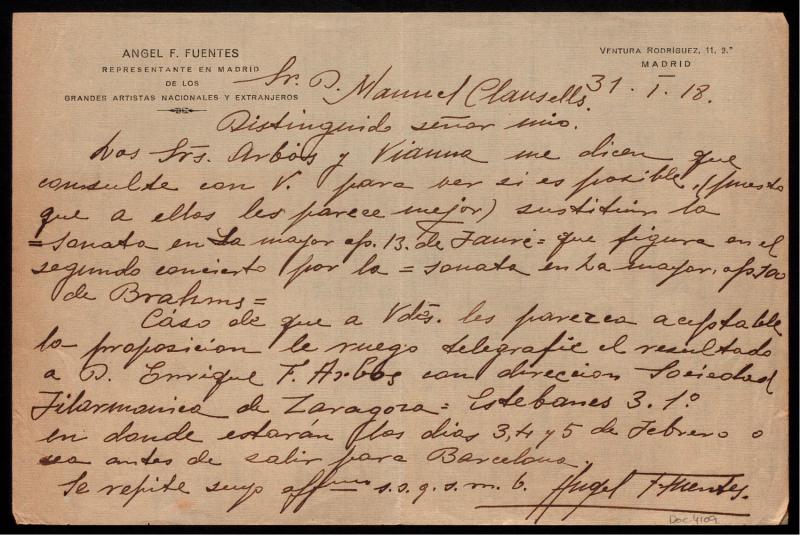 ANGEL F. FUENTES
REPRESENTANTE EN MADRID
DE LOS
GRANDES ARTISTAS NACIONALES Y EXTRANJEROS
VENTURA RODRÍGUEZ, 11, 2.º
MADRID
31. I. 18.
Sr. D. Manuel Clausells.
Distinguido señor mio.
Los Srs. Arbós y Vianna me dicen que
consulte con V. para ver si es posible, (puesto
que a ellos les parece mejor) sustituir la
=sonata en La mayor op. 13. de Fauré= que figura en el
segundo concierto por la =sonata en La mayor, op. 100
de Brahms=
Caso de que a Vdes. les parezca aceptable
la proposicion le ruego telegrafie el resultado
a D. Enrique F. Arbós con direccion Sociedad
Filarmonica de Zaragoza= Estebanes 3. 1º
en donde estarán los dias 3, 4 y 5 de Febrero o
sea antes de salir para Barcelona.
Se repite suyo affmo s. s. q. s. m. b. Angel F. Fuentes.
Doc 4109